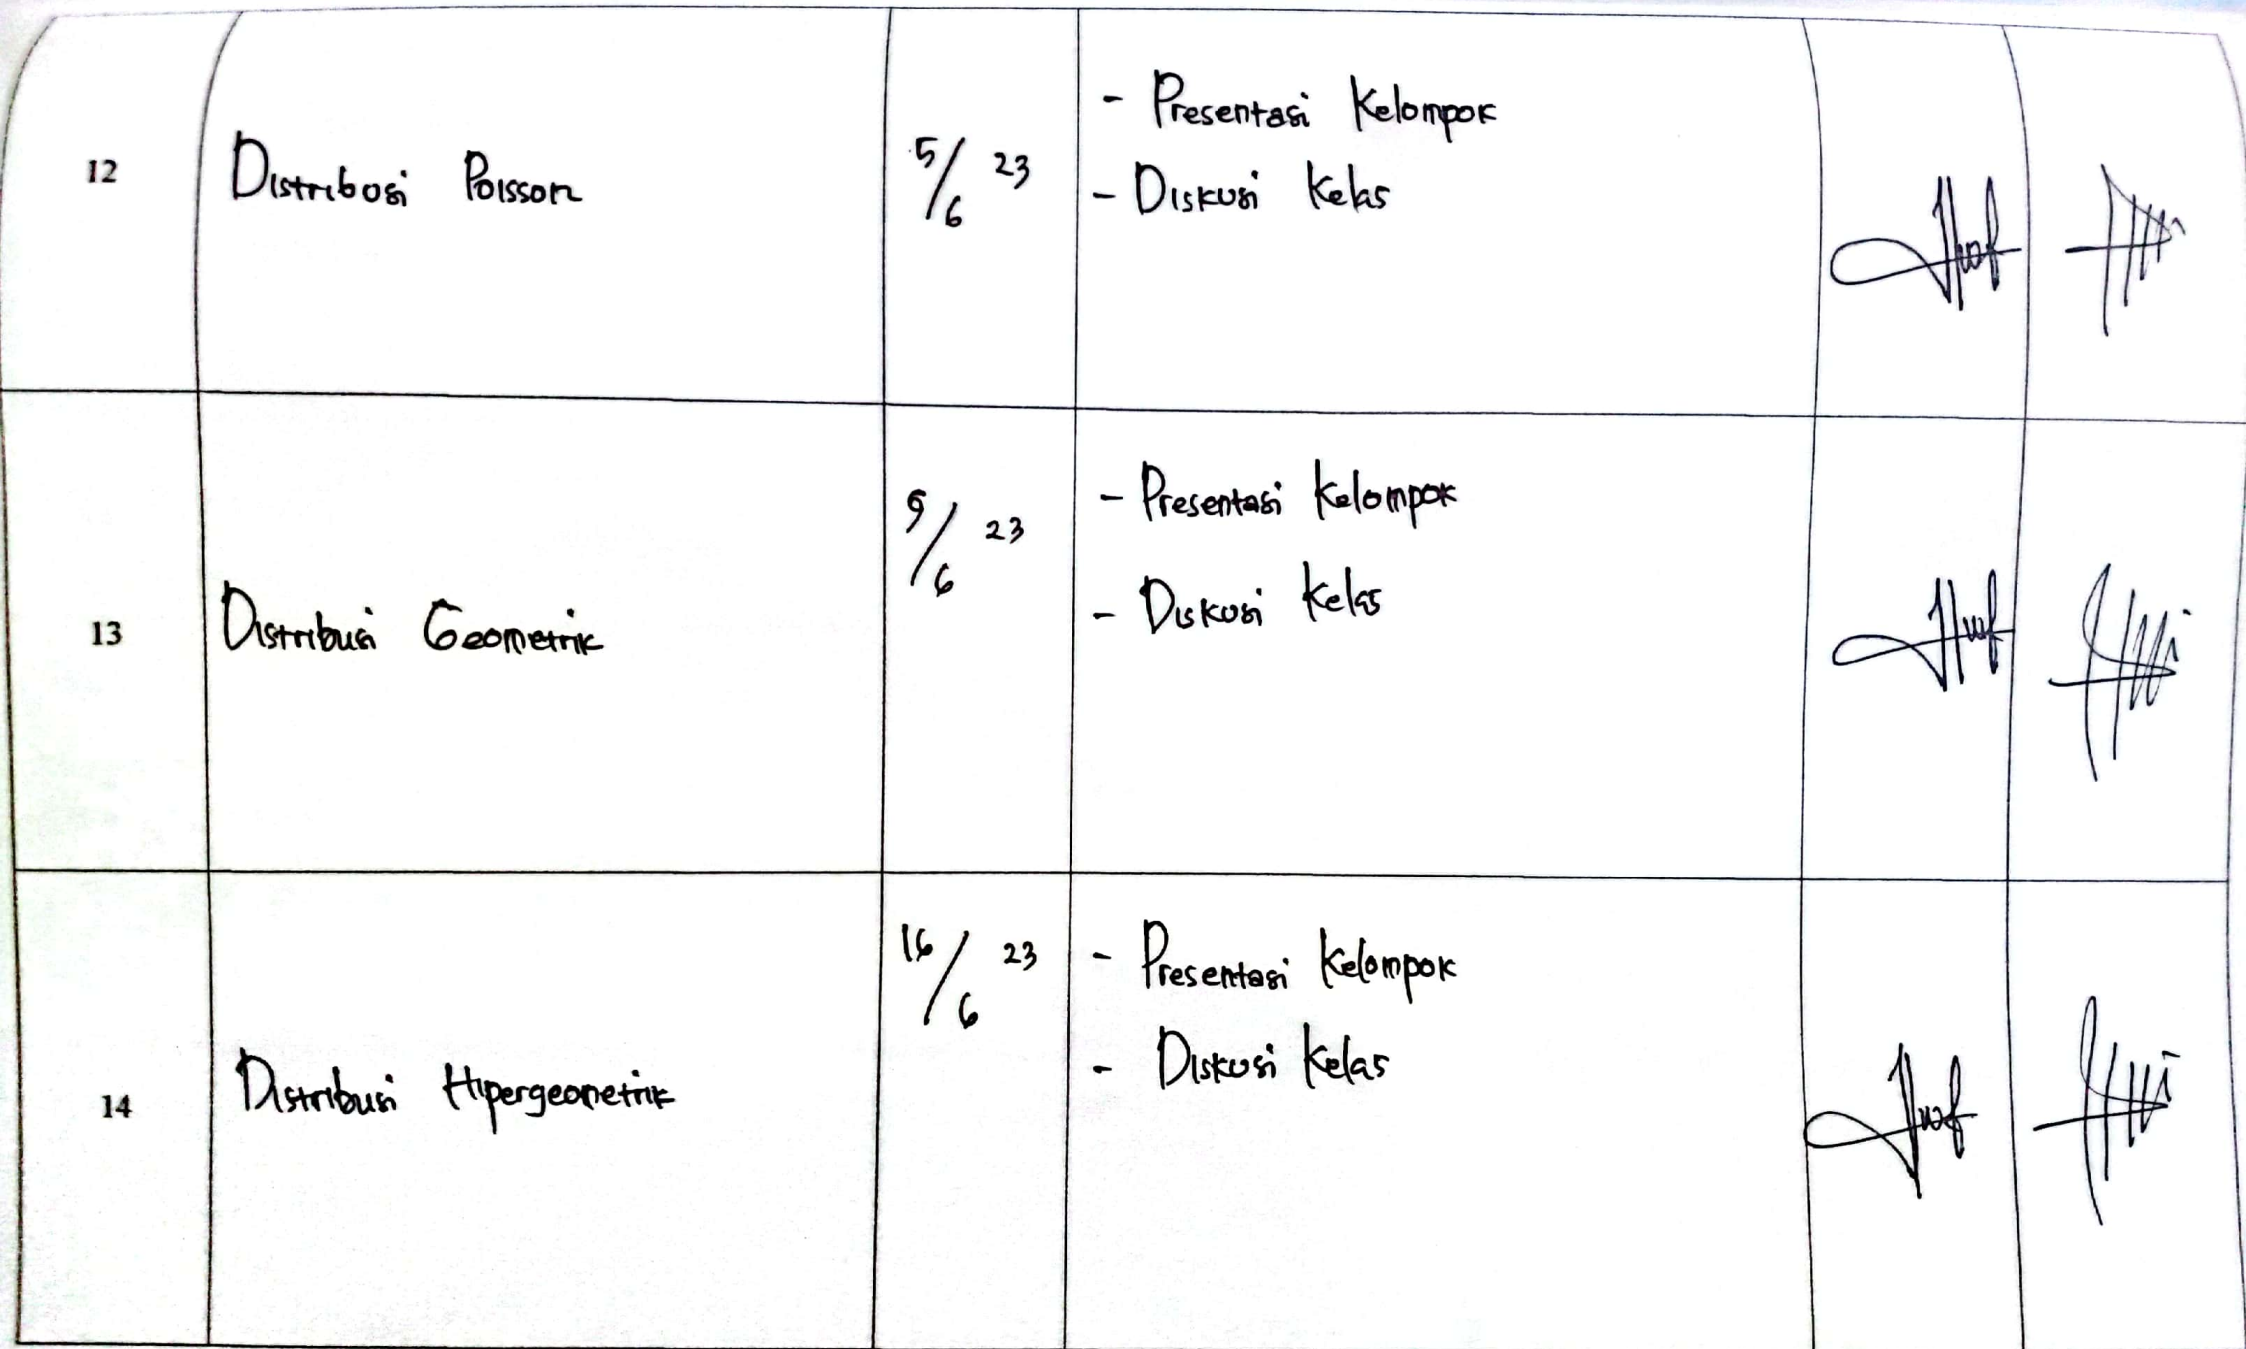 12
Distribusi Poisson
5/6 23
- Presentasi Kelompok
- Diskusi Kelas
13
Distribusi Geometrik
9/6 23
- Presentasi Kelompok
- Diskusi Kelas
14
Distribusi Hipergeometrik
16/6 23
- Presentasi Kelompok
- Diskusi Kelas